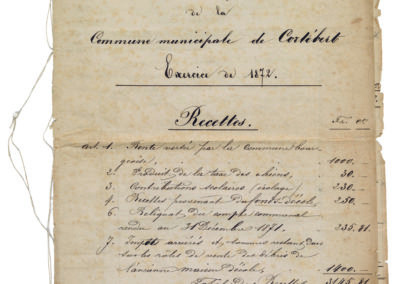 de la
Commune municipale de Cortébert
Exercice de 1872.
Recettes.
Fr. ct.
Art. 1. Rente versée par la commune bour
geoise, 1000. -
2. Produit de la taxe des chiens, 30. -
3. Contributions scolaires (écolage) 230. -
4. Recettes provenant du fonds d'école, 250. -
6. Reliquat du compte communal
rendu au 31 Décembre 1871. 235. 81.
7. Impôts arriérés et, sommes restant dues
sur les rôles de vente des débris de
l'ancienne maison d'école, 1400. -
Total des Recettes 3145. 81